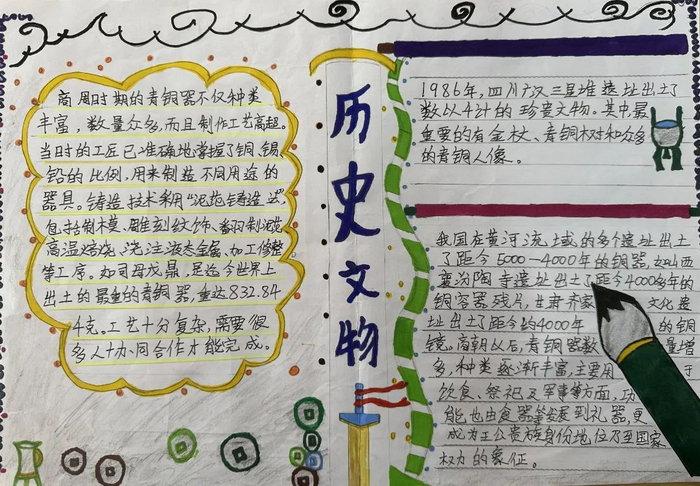 商周时期的青铜器不仅种类
丰富，数量众多，而且制作工艺高超。
当时的工匠已准确地掌握了铜、锡、
铅的比例，用来制造不同用途的
器具。铸造技术采用“泥范铸造法”
包括制模、雕刻纹饰、翻制泥范
高温焙烧、浇注液态金属、加工修整
等工序。如司母戊鼎，是迄今世界上
出土的最重的青铜器，重达832.84
千克。工艺十分复杂，需要很
多人协同合作才能完成。
历史文物
1986年，四川广汉三星堆遗址出土了
数以千计的珍贵文物。其中最
重要的有金杖、青铜树和众多
的青铜人像。
我国在黄河流域的多个遗址出土
了距今5000—4000年的铜器，如山西
襄汾陶寺遗址出土了距今4000多年的
铜容器残片，甘肃齐家文化遗
址出土了距今约4000年的铜
镜。商朝以后，青铜器数量增
多，种类逐渐丰富，主要用于
饮食、祭祀及军事等方面，功
能也由食器等发展到礼器，更
成为王公贵族身份地位乃至国家
权力的象征。